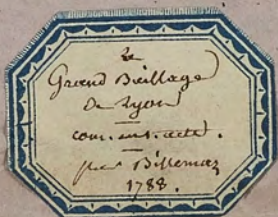 Le
Grand Baillage
De Lyon
com. en un acte.
par Billemaz
1788.